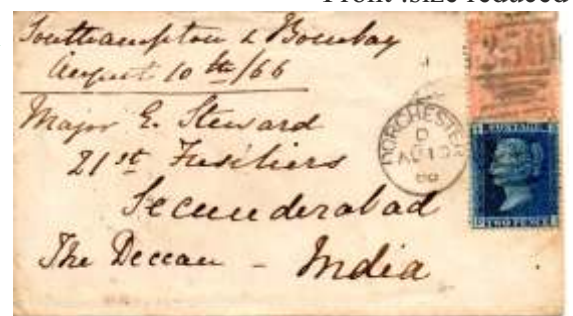 Front :size reduced
Southampton & Bombay
August 10th/66
Major E. Steward
21st Fusiliers
Secunderabad
The Deccan - India
DORCHESTER
D
AU 10
66
POSTAGE
TWO PENCE